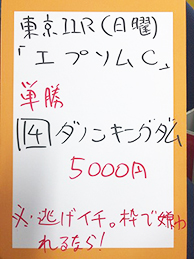 東京11R(日曜)
「エプソムC」
単勝
14 ダノンキングダム
5000円
※逃げイチ。枠で嫌わ
れるなら!